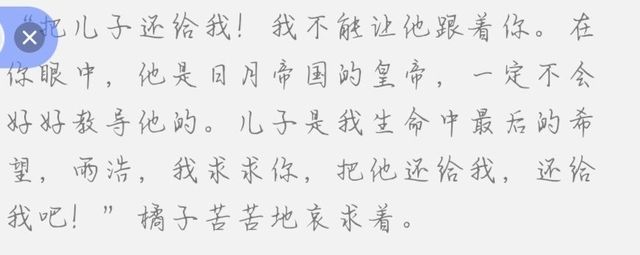 “把儿子还给我！我不能让他跟着你。在
你眼中，他是日月帝国的皇帝，一定不会
好好教导他的。儿子是我生命中最后的希
望，雨浩，我求求你，把他还给我，还给
我吧！”橘子苦苦地哀求着。